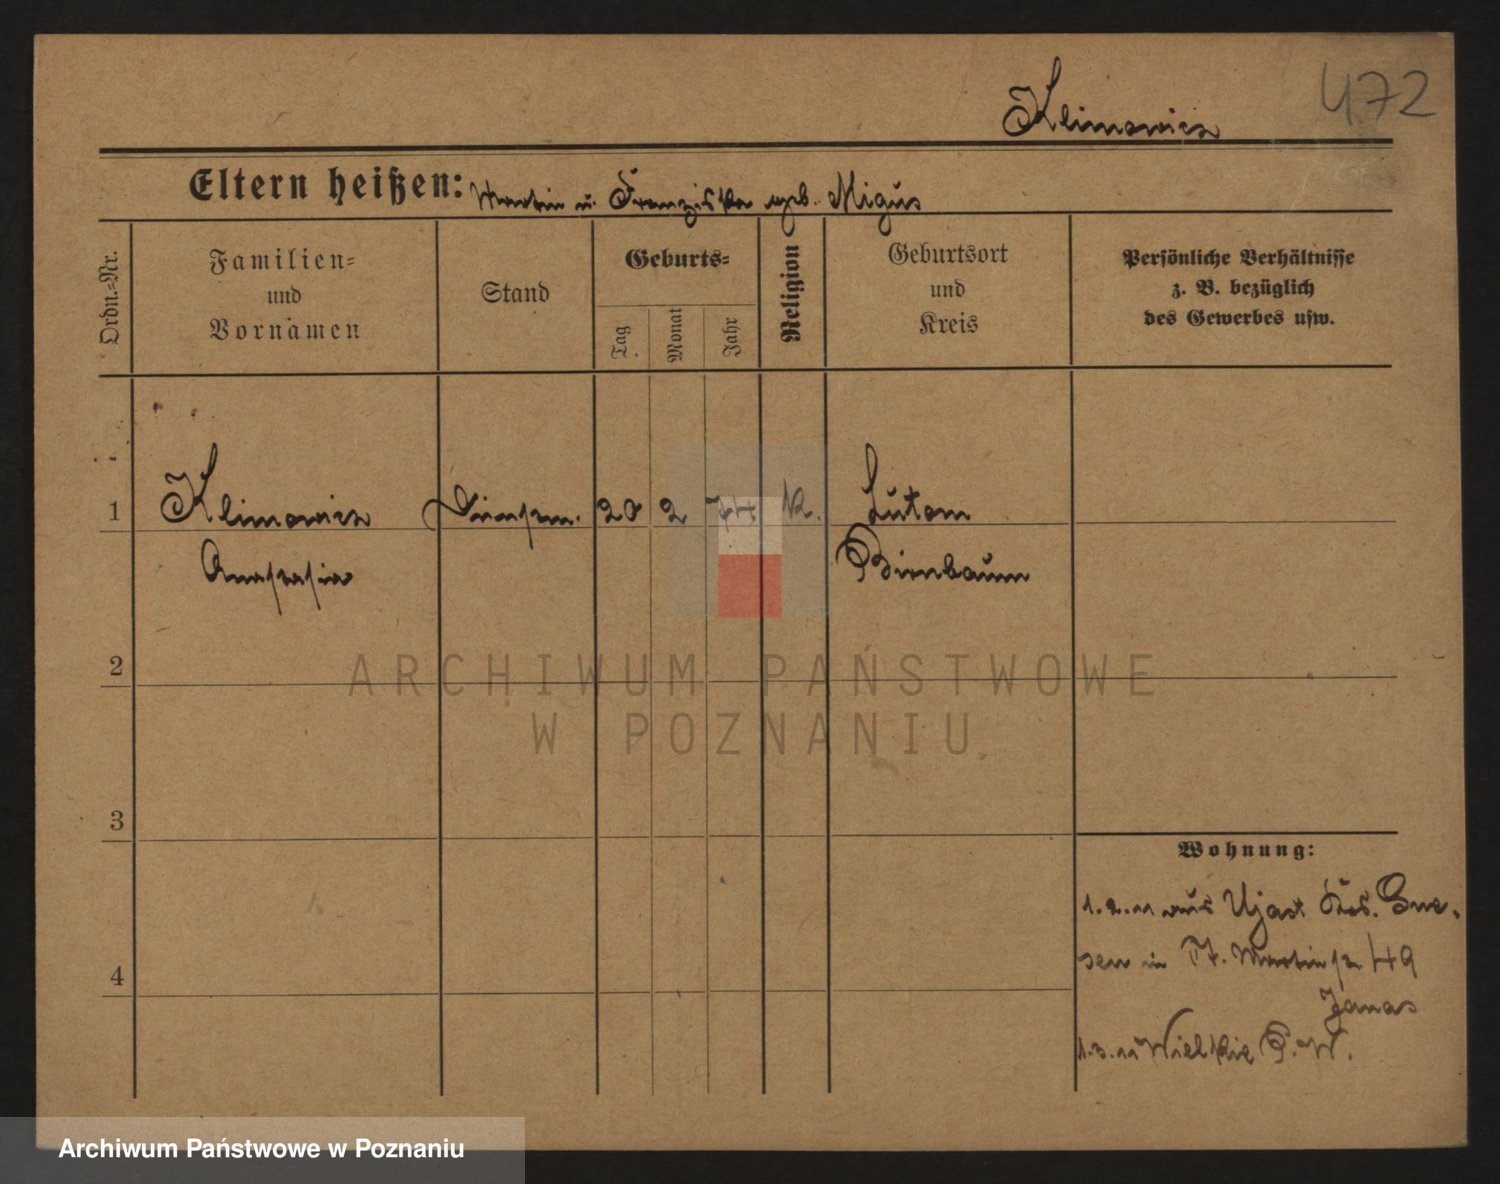 472
Klimowicz
Eltern heißen: Martin u. Franziska geb. Migus
Ordn.-Nr.
Familien-
und
Vornamen
Stand
Geburts-
Tag
Monat
Jahr
Religion
Geburtsort
und
Kreis
Persönliche Verhältnisse
z. B. bezüglich
des Gewerbes usw.
1 Klimowicz 20 2 K. Lutom
Anastasia Birnbaum
2
3
4
Wohnung:
1.2.11 aus Ujast Krs. Gne-
sen in St. Martinstr 49
Janas
1.3.11 Wielkie P.W.
ARCHIWUM PAŃSTWOWE
W POZNANIU
Archiwum Państwowe w Poznaniu